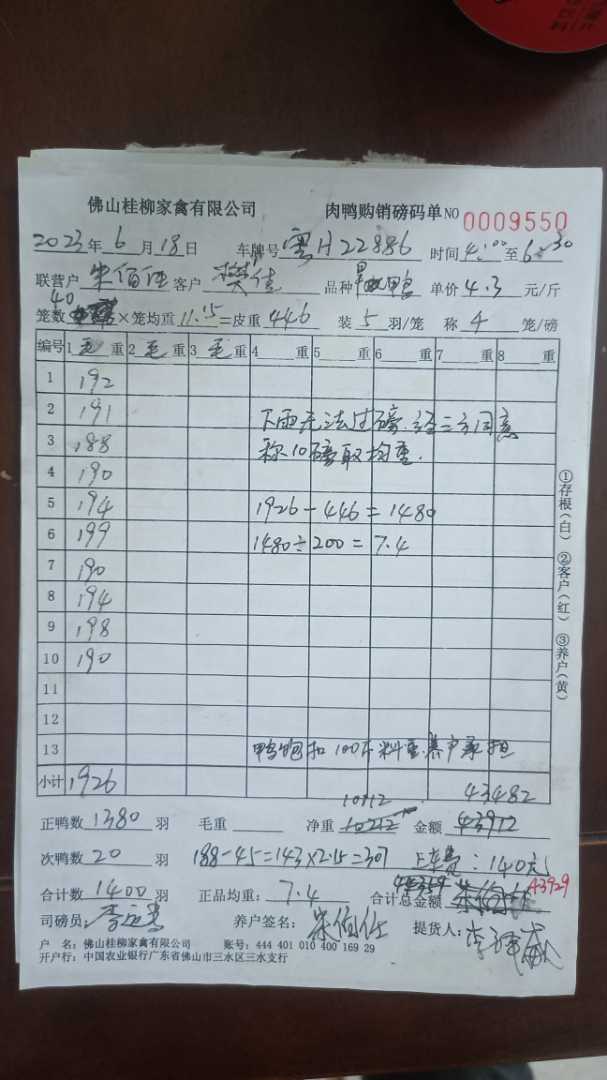 佛山桂柳家禽有限公司 肉鸭购销磅码单 NO 0009550
2023年6月18日 车牌号 粤H22886 时间 4:00至6:30
联营户 朱伯任 客户 樊佳 品种 鸭 单价 4.3 元/斤
笼数 40 ×笼均重 11.15 =皮重 446 装 5 羽/笼 称 4 笼/磅
编号 1 毛 重 2 毛 重 3 毛 重 4 重 5 重 6 重 7 重 8 重
1 192
2 191 下雨无法过磅.经三方同意
3 188 称10磅取均重.
4 190
5 194 1926-446=1480
6 199 1480÷200=7.4
7 190
8 194
9 198
10 190
11
12
13 鸭饱扣100斤料重.养户承担
小计 1926
①存根(白) ②客户(红) ③养户(黄)
10112 43482
正鸭数 1380 羽 毛重 净重 10212 金额 43912
次鸭数 20 羽 188-45=143×2.15=307 上车费:140元
合计数 1400 羽 正品均重: 7.4 合计总金额 43929
司磅员: 养户签名: 朱伯任 提货人:
户 名: 佛山桂柳家禽有限公司 账号: 444 401 010 400 169 29
开户行: 中国农业银行广东省佛山市三水区三水支行